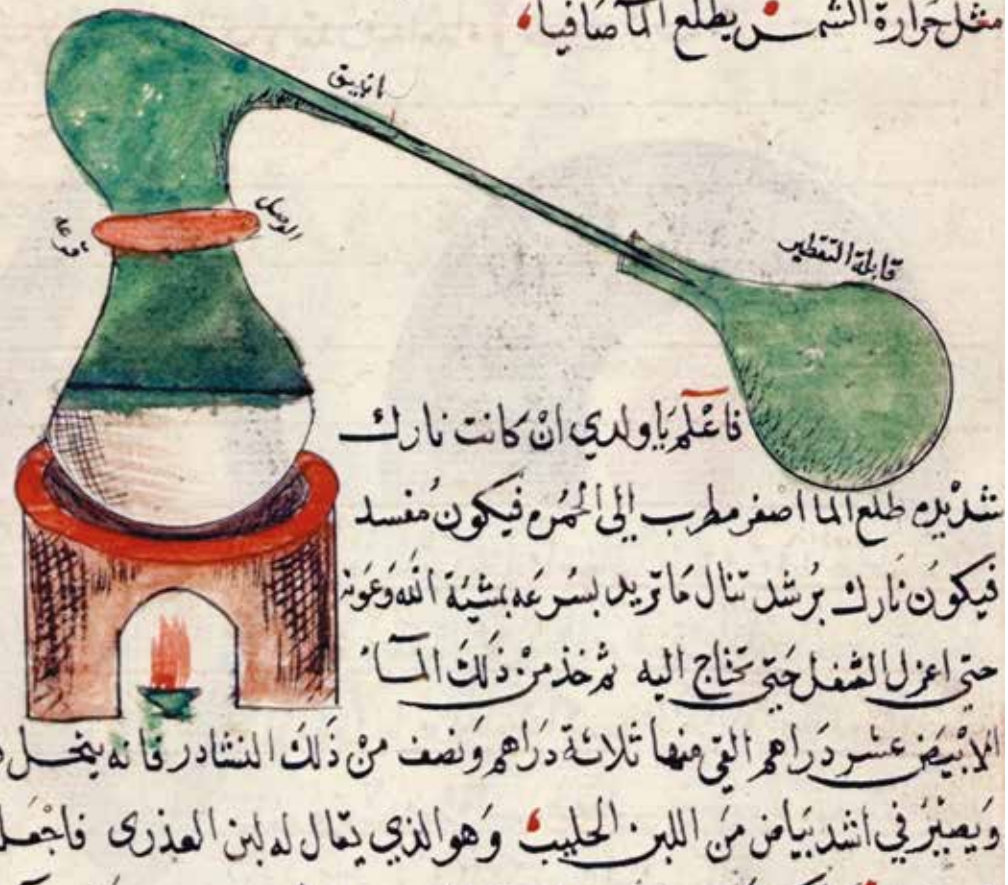 مثل حرارة الشمس يطلع الما صافيا
انبيق
الوصل
قرعة
قابلة التقطير
فاعلم يا ولدي ان كانت نارك
شديده طلع الما اصفر مطرب الى الحمره فيكون مفسد
فيكون نارك برشد تنال ما تريد بسرعه بمشية الله وعونه
حتى اعزل الثفل حتى تحتاج اليه ثم خذ من ذلك المآء
الابيض عشر دراهم القي منها ثلاثة دراهم ونصف من ذلك النشادر فانه ينحل
ويصير في اشد بياض من اللبن الحليب وهو الذي يقال له لبن العذرى فاجعل